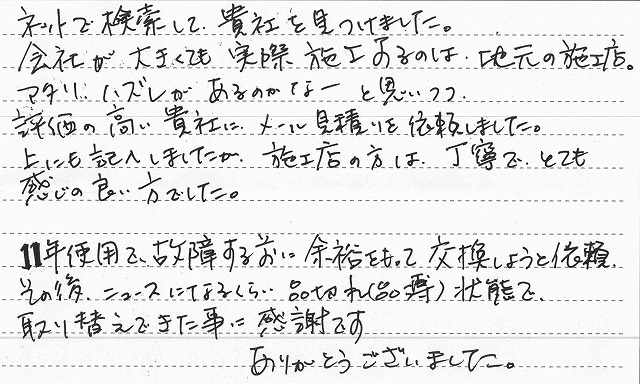 ネットで検索して、貴社を見つけました。
会社が大きくても実際施工するのは、地元の施工店。
アタリ、ハズレがあるのかなー と思いつつ、
評価の高い貴社に、メール見積りを依頼しました。
上にも記入しましたが、施工店の方は、丁寧で、とても
感じの良い方でした。
11年使用で、故障する前に余裕をもって交換しようと依頼。
その後、ニュースになるくらい品切れ(品薄)状態で、
取り替えできた事に感謝です
ありがとうございました。